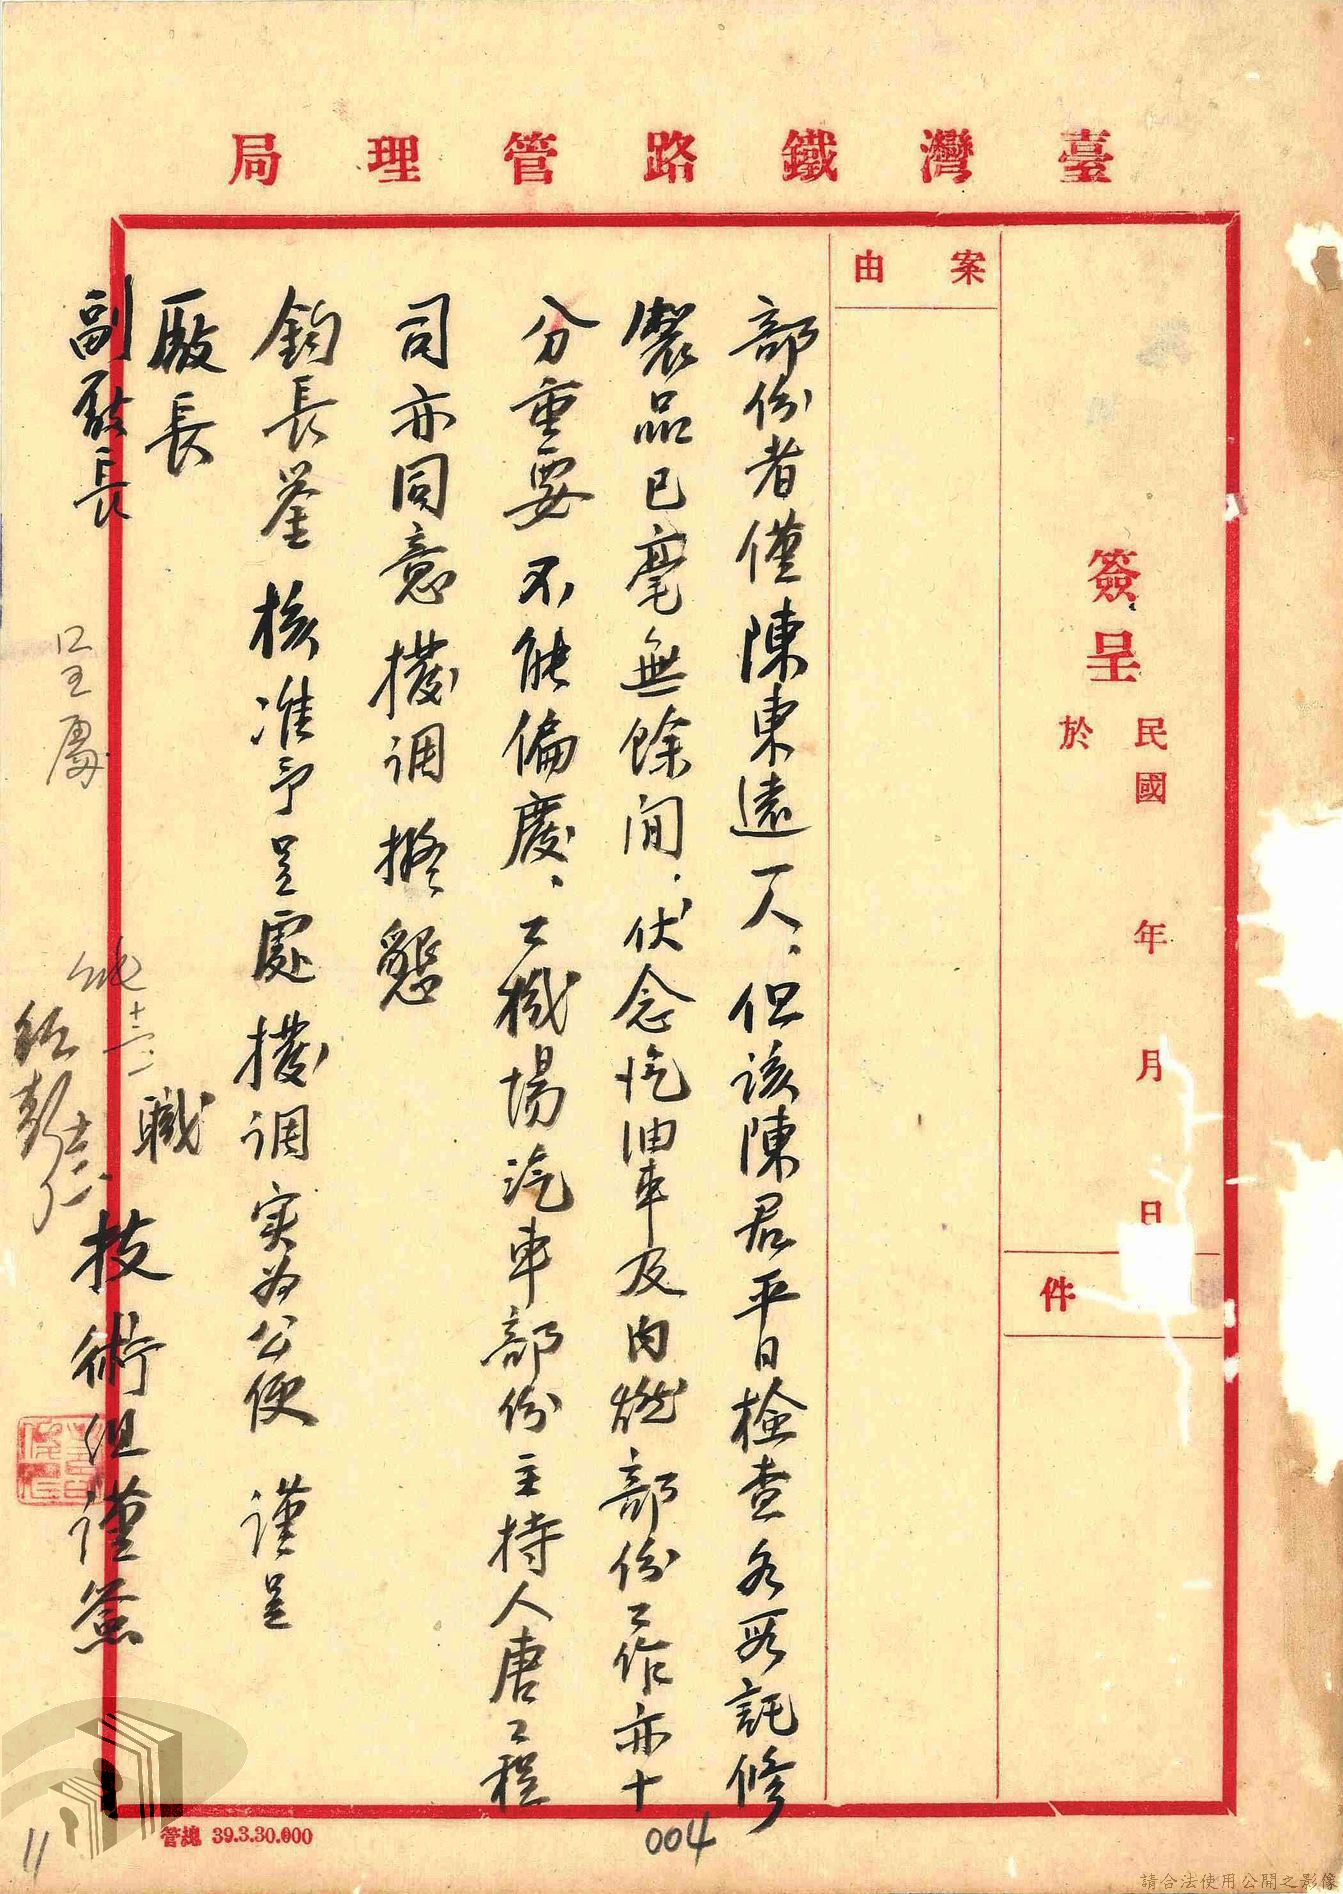 臺灣鐵路管理局
簽呈
於
民國 年 月 日
件
案由
部份者僅陳東遠一人、但該陳君平日檢查各段託修
製品已毫無餘閒、伏念汽油車及內燃部份工作亦十
分重要不能偏廢、工機場汽車部份主持人唐工程
司亦同意撥調擬懇
鈞長鑒核准予呈處撥調實為公便 謹呈
廠長
副廠長
職
技術組謹簽
呈處
管總 39.3.30.000
004
11
請合法使用公開之影像